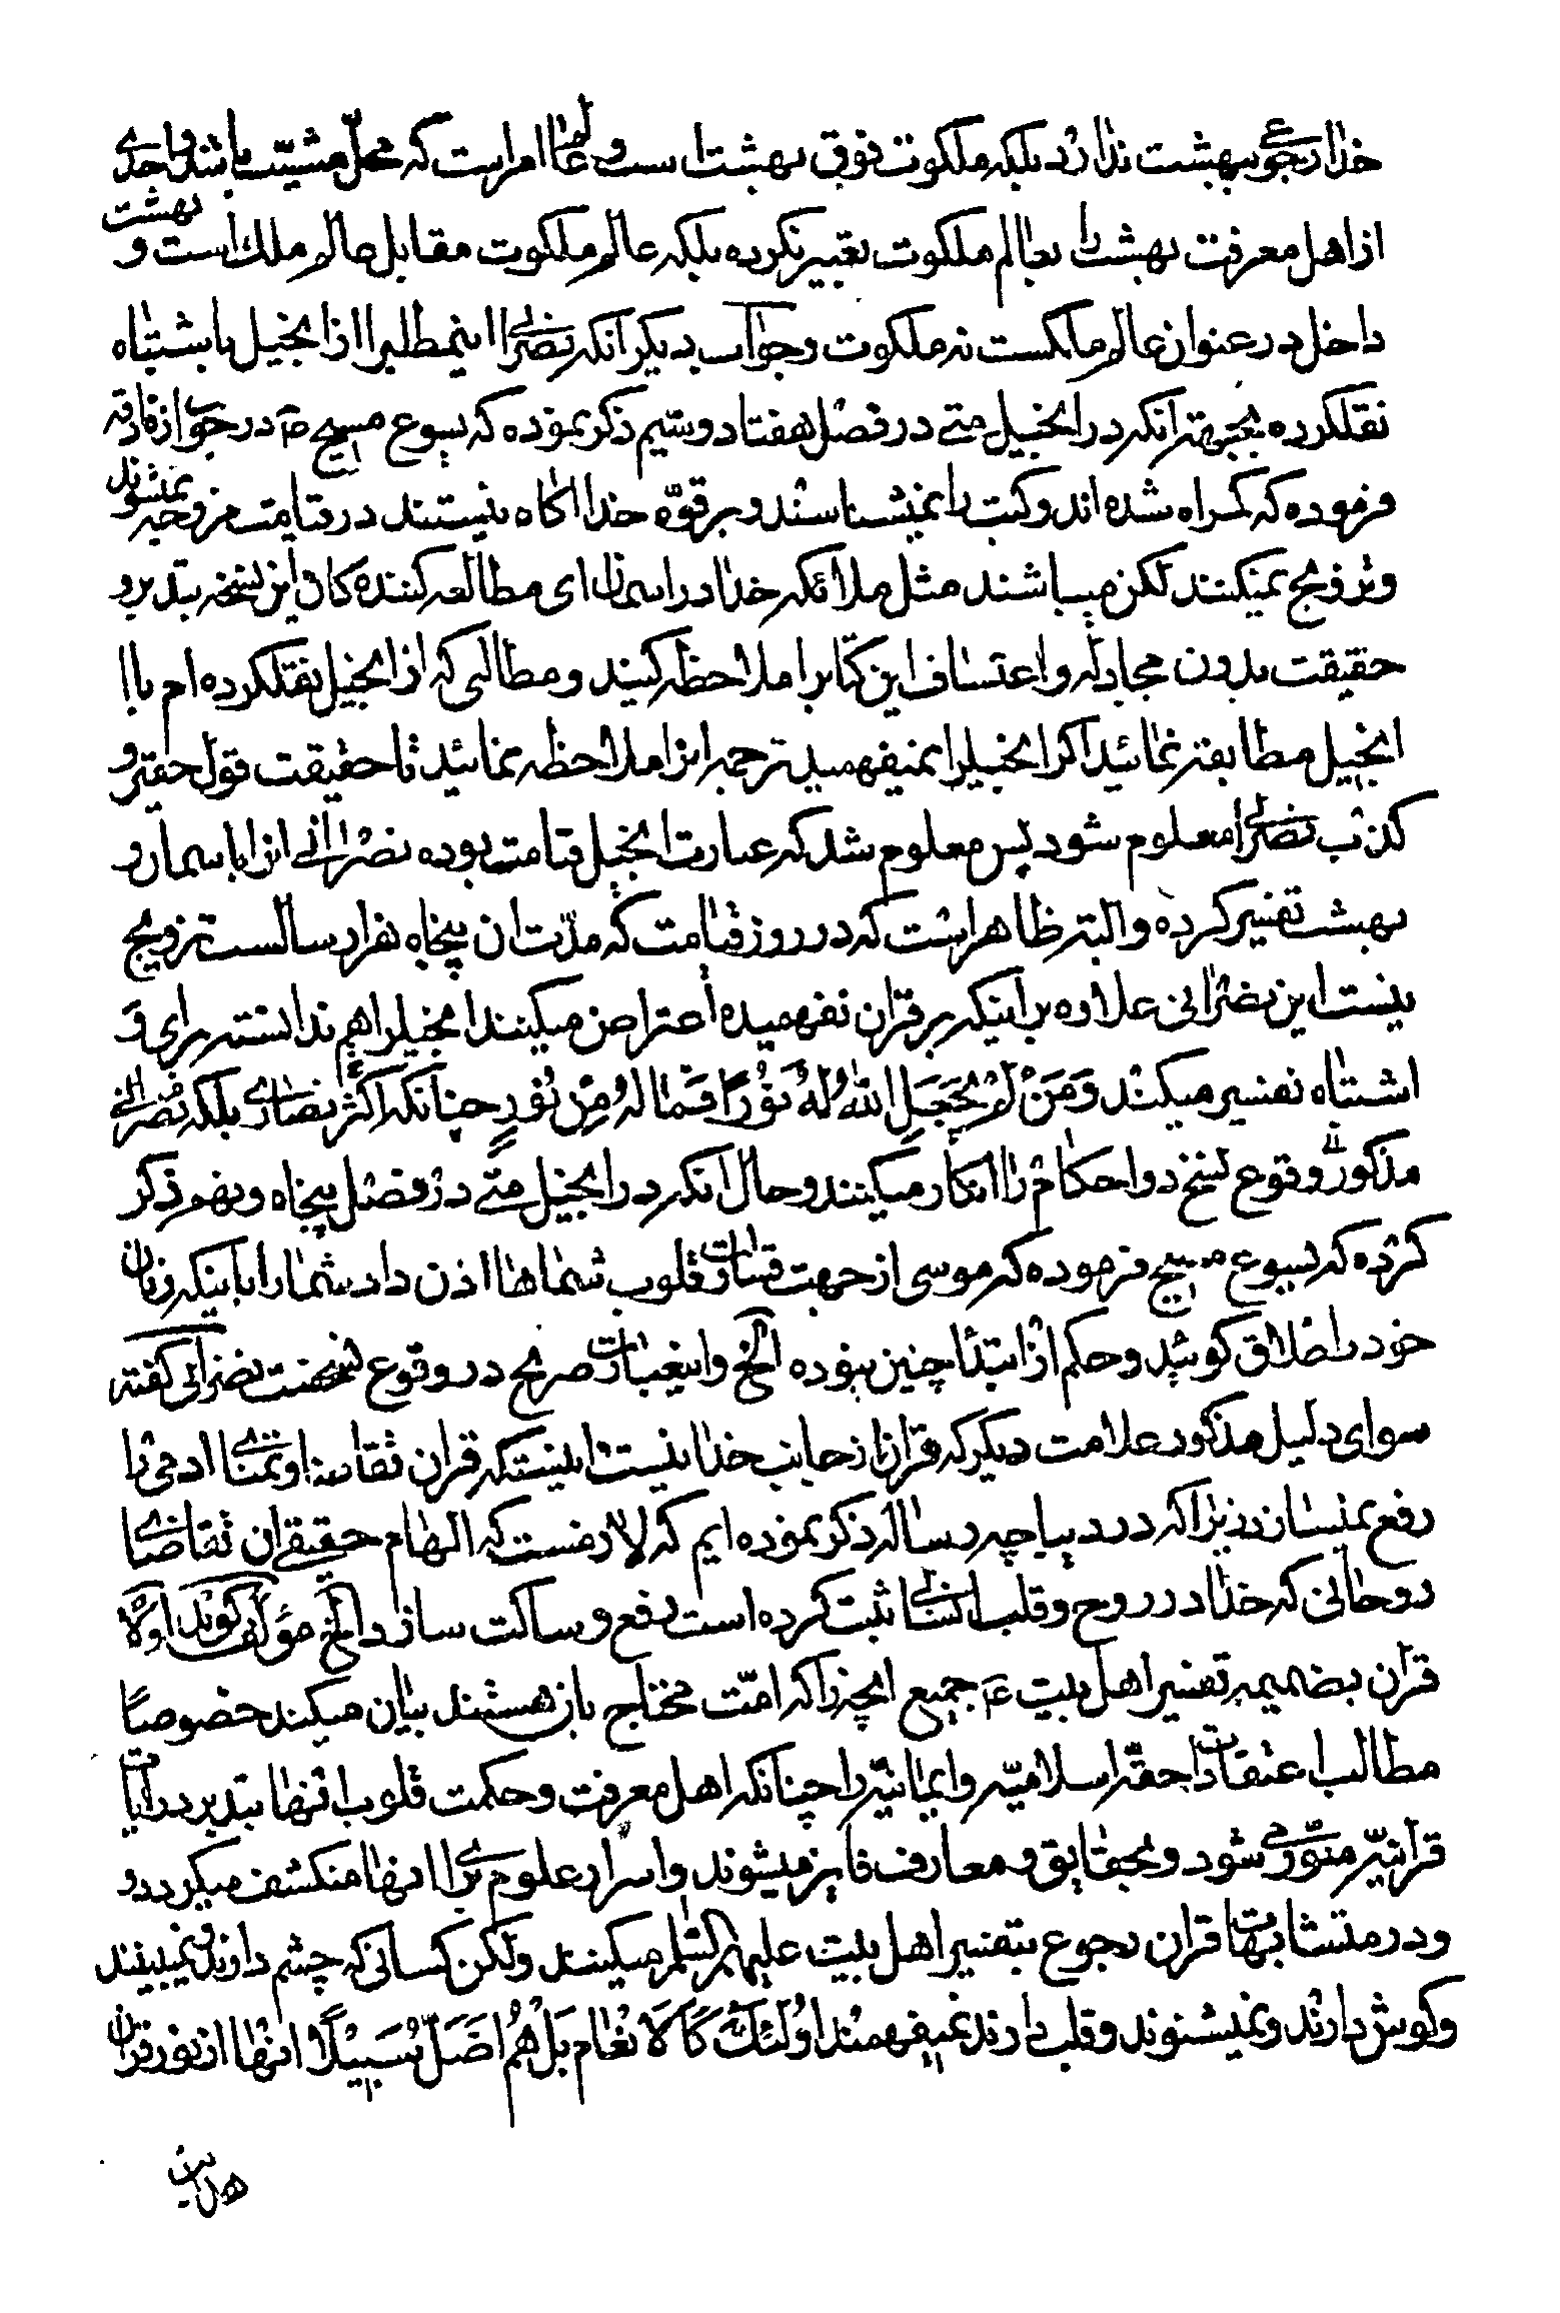 خدا رجوعی ببهشت ندارد بلکه ملکوت فوق بهشت است و عالم امر است که محل مشیت باشد واحدی
از اهل معرفت بهشت را بعالم ملکوت تعبیر نکرده بلکه عالم ملکوت مقابل عالم ملک است و بهشت
داخل در عنوان عالم ملکست نه ملکوت وجواب دیگر آنکه نصرانی اینمطلبرا از انجیل باشتباه
نقلکرده بجهة انکه در انجیل متی در فصل هفتاد و سیم ذکر نموده که یسوع مسیح در جواب زنادقه
فرموده که گمراه شده اند و کتب را نمیشناسند و بر قوّه خدا اکاه نیستند در قیامت مزوجه نمیشوند
وتزویج نمیکنند لکن میباشند مثل ملائکه خدا در اسمان ای مطالعه کننده کان این نسخه بتدبر و
حقیقت بدون مجادله واعتساف این کتابرا ملاحظه کنید ومطالبی که از انجیل نقلکرده ام با
انجیل مطابقه نمائید اکر انجیلرا نمیفهمید ترجمه انرا ملاحظه نمائید تا حقیقت قول حقیر و
کذب نصرانی معلوم شود پس معلوم شد که عبارت انجیل قیامت بوده نصرانی انرا باسمان و
بهشت تفسیر کرده والبته ظاهر است که در روز قیامت که مدّت ان پنجاه هزار سالست تزویج
نیست این نصرانی علاوه بر اینکه بر قران نفهمیده اعتراض میکند انجیلرا هم ندانسته برای و
اشتباه تفسیر میکند وَمَنْ لَمْ یَجْعَلِ اللّٰهُ لَهُ نُورًا فَمَا لَهُ مِنْ نُورٍ چنانکه اکثر نصاری بلکه نصرانی
مذکور وقوع نسخ در احکام را انکار میکنند وحال انکه در انجیل متی در فصل پنجاه ونهم ذکر
کرده که یسوع مسیح فرموده که موسی از جهت قساوت قلوب شماها اذن داد شما را باینکه زنان
خود را طلاق کوئید وحکم از ابتدا چنین نبوده الخ واینعبارت صریح در وقوع نسخست نصرانی کفته
سوای دلیل مذکور علامت دیکر که قران از جانب خدا نیست اینستکه قران تقاضا وتمنای ادمی را
رفع نمیسازد زیرا که در دیباچه رساله ذکر نموده ایم که لازمست که الهام حقیقی ان تقاضای
روحانی که خدا در روح وقلب انسانی ثبت کرده است رفع و ساکت سازد الخ مؤلف کوید اولا
قران بضمیمه تفسیر اهل بیت ع جمیع انچه را که امّت محتاج بان هستند بیان میکند خصوصا
مطالب اعتقادات حقه اسلامیّه وایمانیّه را چنانکه اهل معرفت وحکمت قلوب انها بتدبر در ایات
قرانیّه منوّر می شود وبحقایق و معارف فایز میشوند واسرار علوم برای انها منکشف میکردد و
ودر متشابهات قران رجوع بتفسیر اهل بیت علیهم السلام میکنند ولکن کسانی که چشم دارند ونمیبینند
وکوش دارند ونمیشنوند وقلب دارند نمیفهمند اُولئِكَ كَالْاَنْعامِ بَلْ هُمْ اَضَلُّ سَبِیْلًا انها از نور قران
هدایت